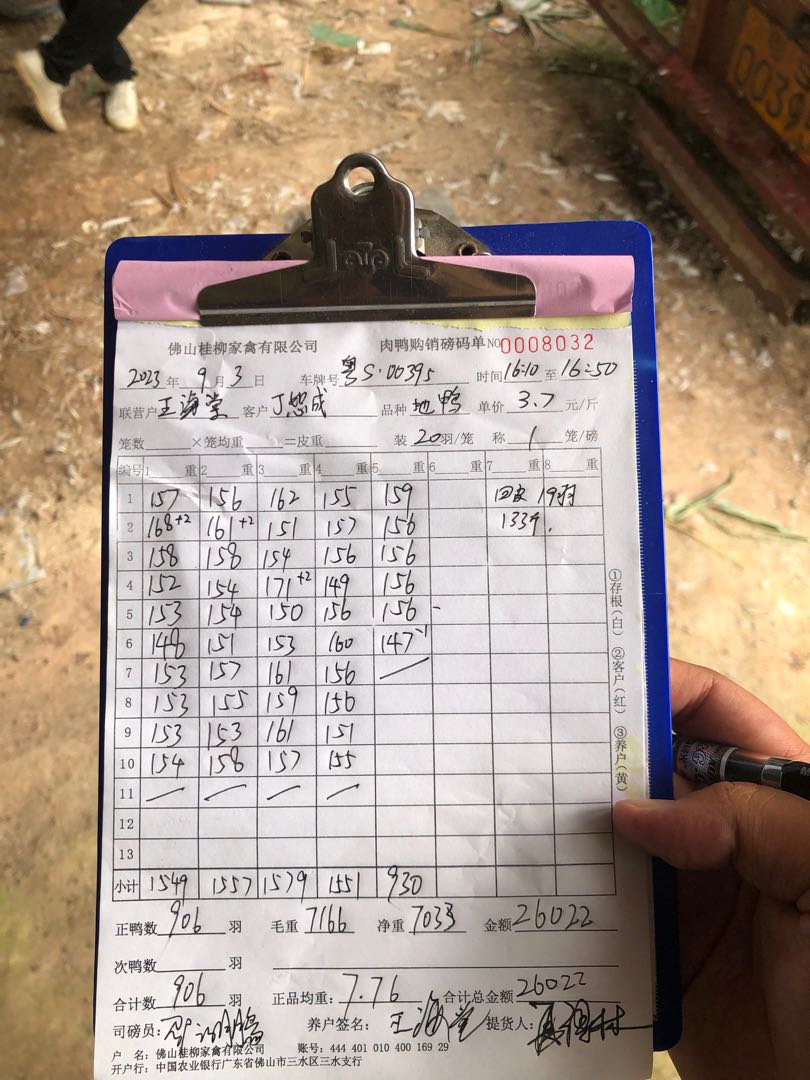 佛山桂柳家禽有限公司 肉鸭购销磅码单 NO 0008032
2023年 9月 3日 车牌号 粤S·00395 时间 16:10 至 16:50
联营户 王海堂 客户 品种 地鸭 单价 3.7 元/斤
笼数 ×笼均重 =皮重 装 20 羽/笼 称 1 笼/磅
编号 1 重 2 重 3 重 4 重 5 重 6 重 7 重 8 重
1 157 156 162 155 159 回皮 19羽
2 168+2 161+2 151 157 156 133斤.
3 158 158 154 156 156
4 152 154 171+2 149 156
5 153 154 150 156 156
6 148 151 153 160 147-1
7 153 157 161 156
8 153 155 159 156
9 153 153 161 151
10 154 158 157 155
11
12
13
小计 1549 1557 1579 1551 930
正鸭数 906 羽 毛重 7166 净重 7033 金额 26022
次鸭数 羽
合计数 906 羽 正品均重: 7.76 合计总金额 26022
司磅员: 养户签名: 王海堂 提货人:
户 名: 佛山桂柳家禽有限公司 账号: 444 401 010 400 169 29
开户行: 中国农业银行广东省佛山市三水区三水支行
①存根(白) ②客户(红) ③养户(黄)